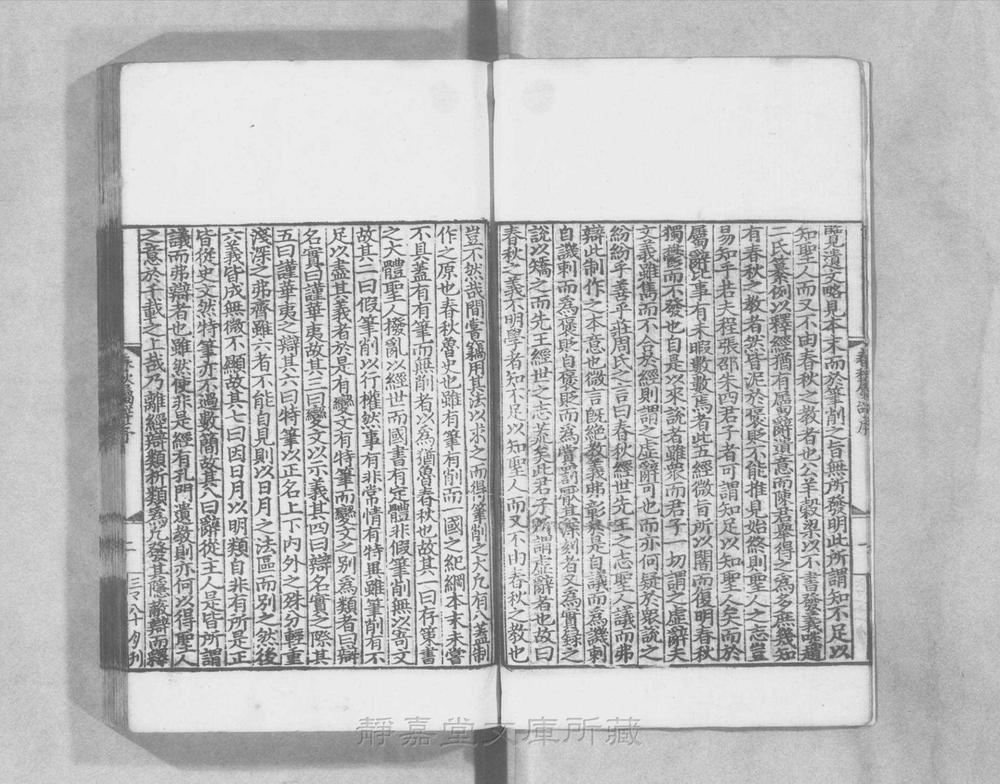 覽遺文略見本末而於筆削之旨無所發明此所謂知不足以
知聖人而又不由春秋之教者也公羊穀梁以不書發義啖趙
二氏纂例以釋經猶有屬辭遺意而陳君舉得之為多庶幾知
有春秋之教者然皆泥於褒貶不能推見始終則聖人之志豈
易知乎若夫程張邵朱四君子者可謂知足以知聖人矣而於
屬辭比事有未暇數數焉者此五經微旨所以闇而復明春秋
獨鬱而不發也自是以來說者雖衆而君子一切謂之虛辭夫
文義雖雋而不合於經則謂之虛辭可也而亦何疑於衆說之
紛紛乎善乎莊周氏之言曰春秋經世先王之志聖人議而弗
辯此制作之本意也微言既絶教義弗彰於是自議而為譏刺
自譏刺而為褒貶自褒貶而為賞罰厭其深刻者又為實録之
說以矯之而先王經世之志荒矣此君子所謂虛辭者也故曰
春秋之義不明學者知不足以知聖人而又不由春秋之教也
豈不然哉間嘗竊用其法以求之而得筆削之大凡有八蓋制
作之原也春秋魯史也雖有筆有削而一國之紀綱本末未嘗
不具蓋有有筆而無削者以為猶魯春秋也故其一曰存策書
之大體聖人撥亂以經世而國書有定體非假筆削無以寄文
故其二曰假筆削以行權然事有非常情有特異雖筆削有不
足以盡其義者於是有變文有特筆而變文之別為類者曰辯
名實曰謹華夷故其三曰變文以示義其四曰辯名實之際其
五曰謹華夷之辯其六曰特筆以正名上下內外之殊分輕重
淺深之弗齊雖六者不能自見則以日月之法區而別之然後
六義皆成無微不顯故其七曰因日月以明類自非有所是正
皆從史文然特筆亦不過數簡故其八曰辭從主人是皆所謂
議而弗辯者也雖然使非是經有孔門遺教則亦何以得聖人
之意於千載之上哉乃離經辯類析類為凡發其隱蔽辯而釋
春秋屬辭序
一
春秋屬辭序
二
靜嘉堂文庫所藏